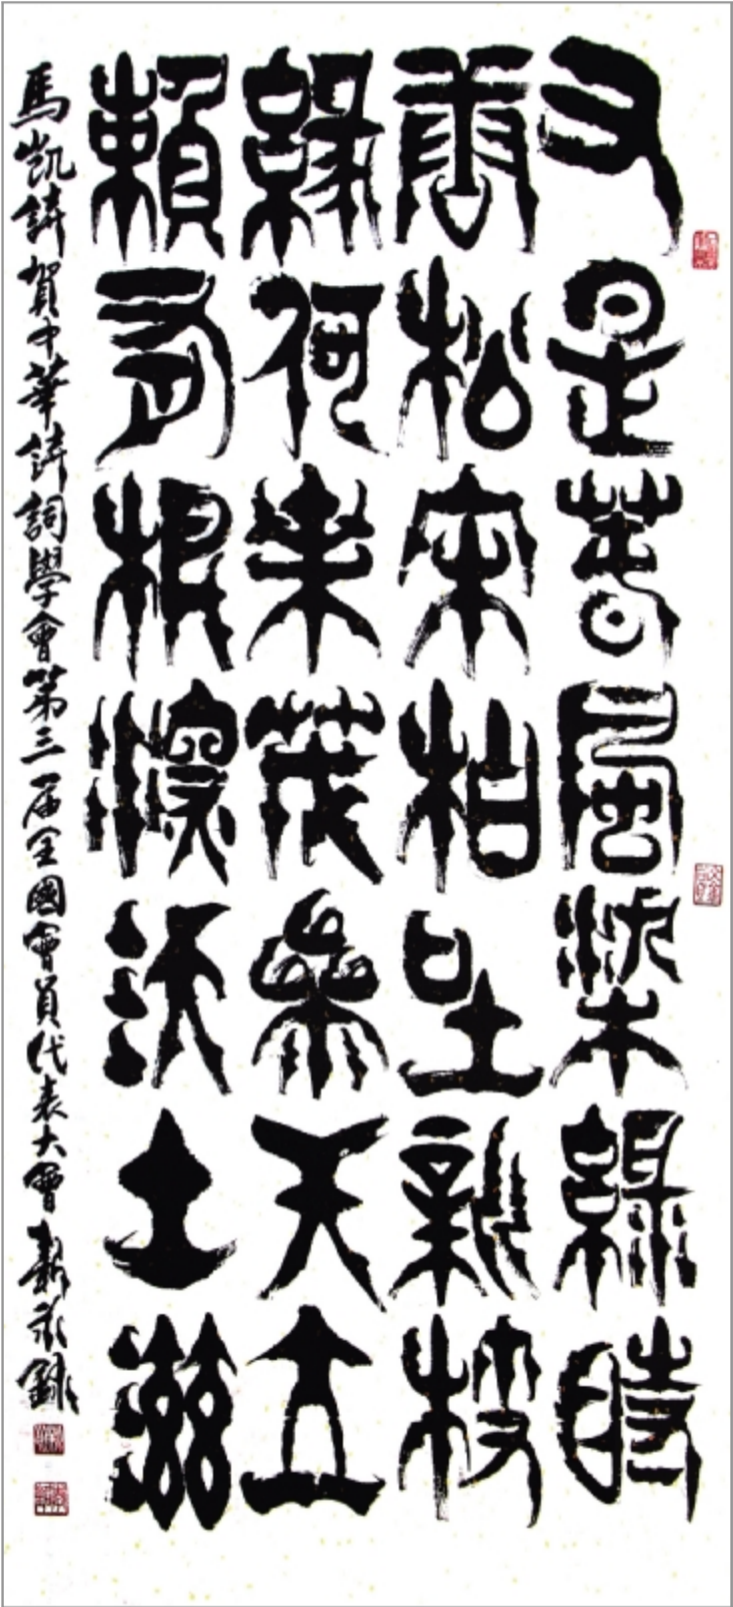 又是春風染綠時
唐松宋柏吐新枝
緣何葉茂參天立
賴有根深沃土滋
馬凱詩賀中華詩詞學會第三屆全國會員代表大會 靳永錄